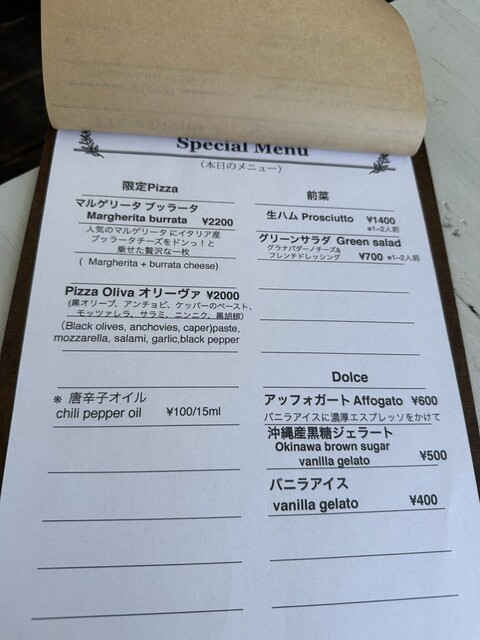 Special Menu
(本日のメニュー)
限定Pizza
マルゲリータ ブッラータ
Margherita burrata ¥2200
人気のマルゲリータにイタリア産
ブッラータチーズをドンっ！と
乗せた贅沢な一枚
( Margherita + burrata cheese)
Pizza Oliva オリーヴァ ¥2000
(黒オリーブ、アンチョビ、ケッパーのペースト、
モッツァレラ、サラミ、ニンニク、黒胡椒)
(Black olives, anchovies, caper)paste,
mozzarella, salami, garlic,black pepper
※ 唐辛子オイル
chili pepper oil ¥100/15ml
前菜
生ハム Prosciutto ¥1400
※1~2人前
グリーンサラダ Green salad
グラナパダーノチーズ&
フレンチドレッシング ¥700 ※1~2人前
Dolce
アッフォガート Affogato ¥600
バニラアイスに濃厚エスプレッソをかけて
沖縄産黒糖ジェラート
Okinawa brown sugar
vanilla gelato ¥500
バニラアイス
vanilla gelato ¥400